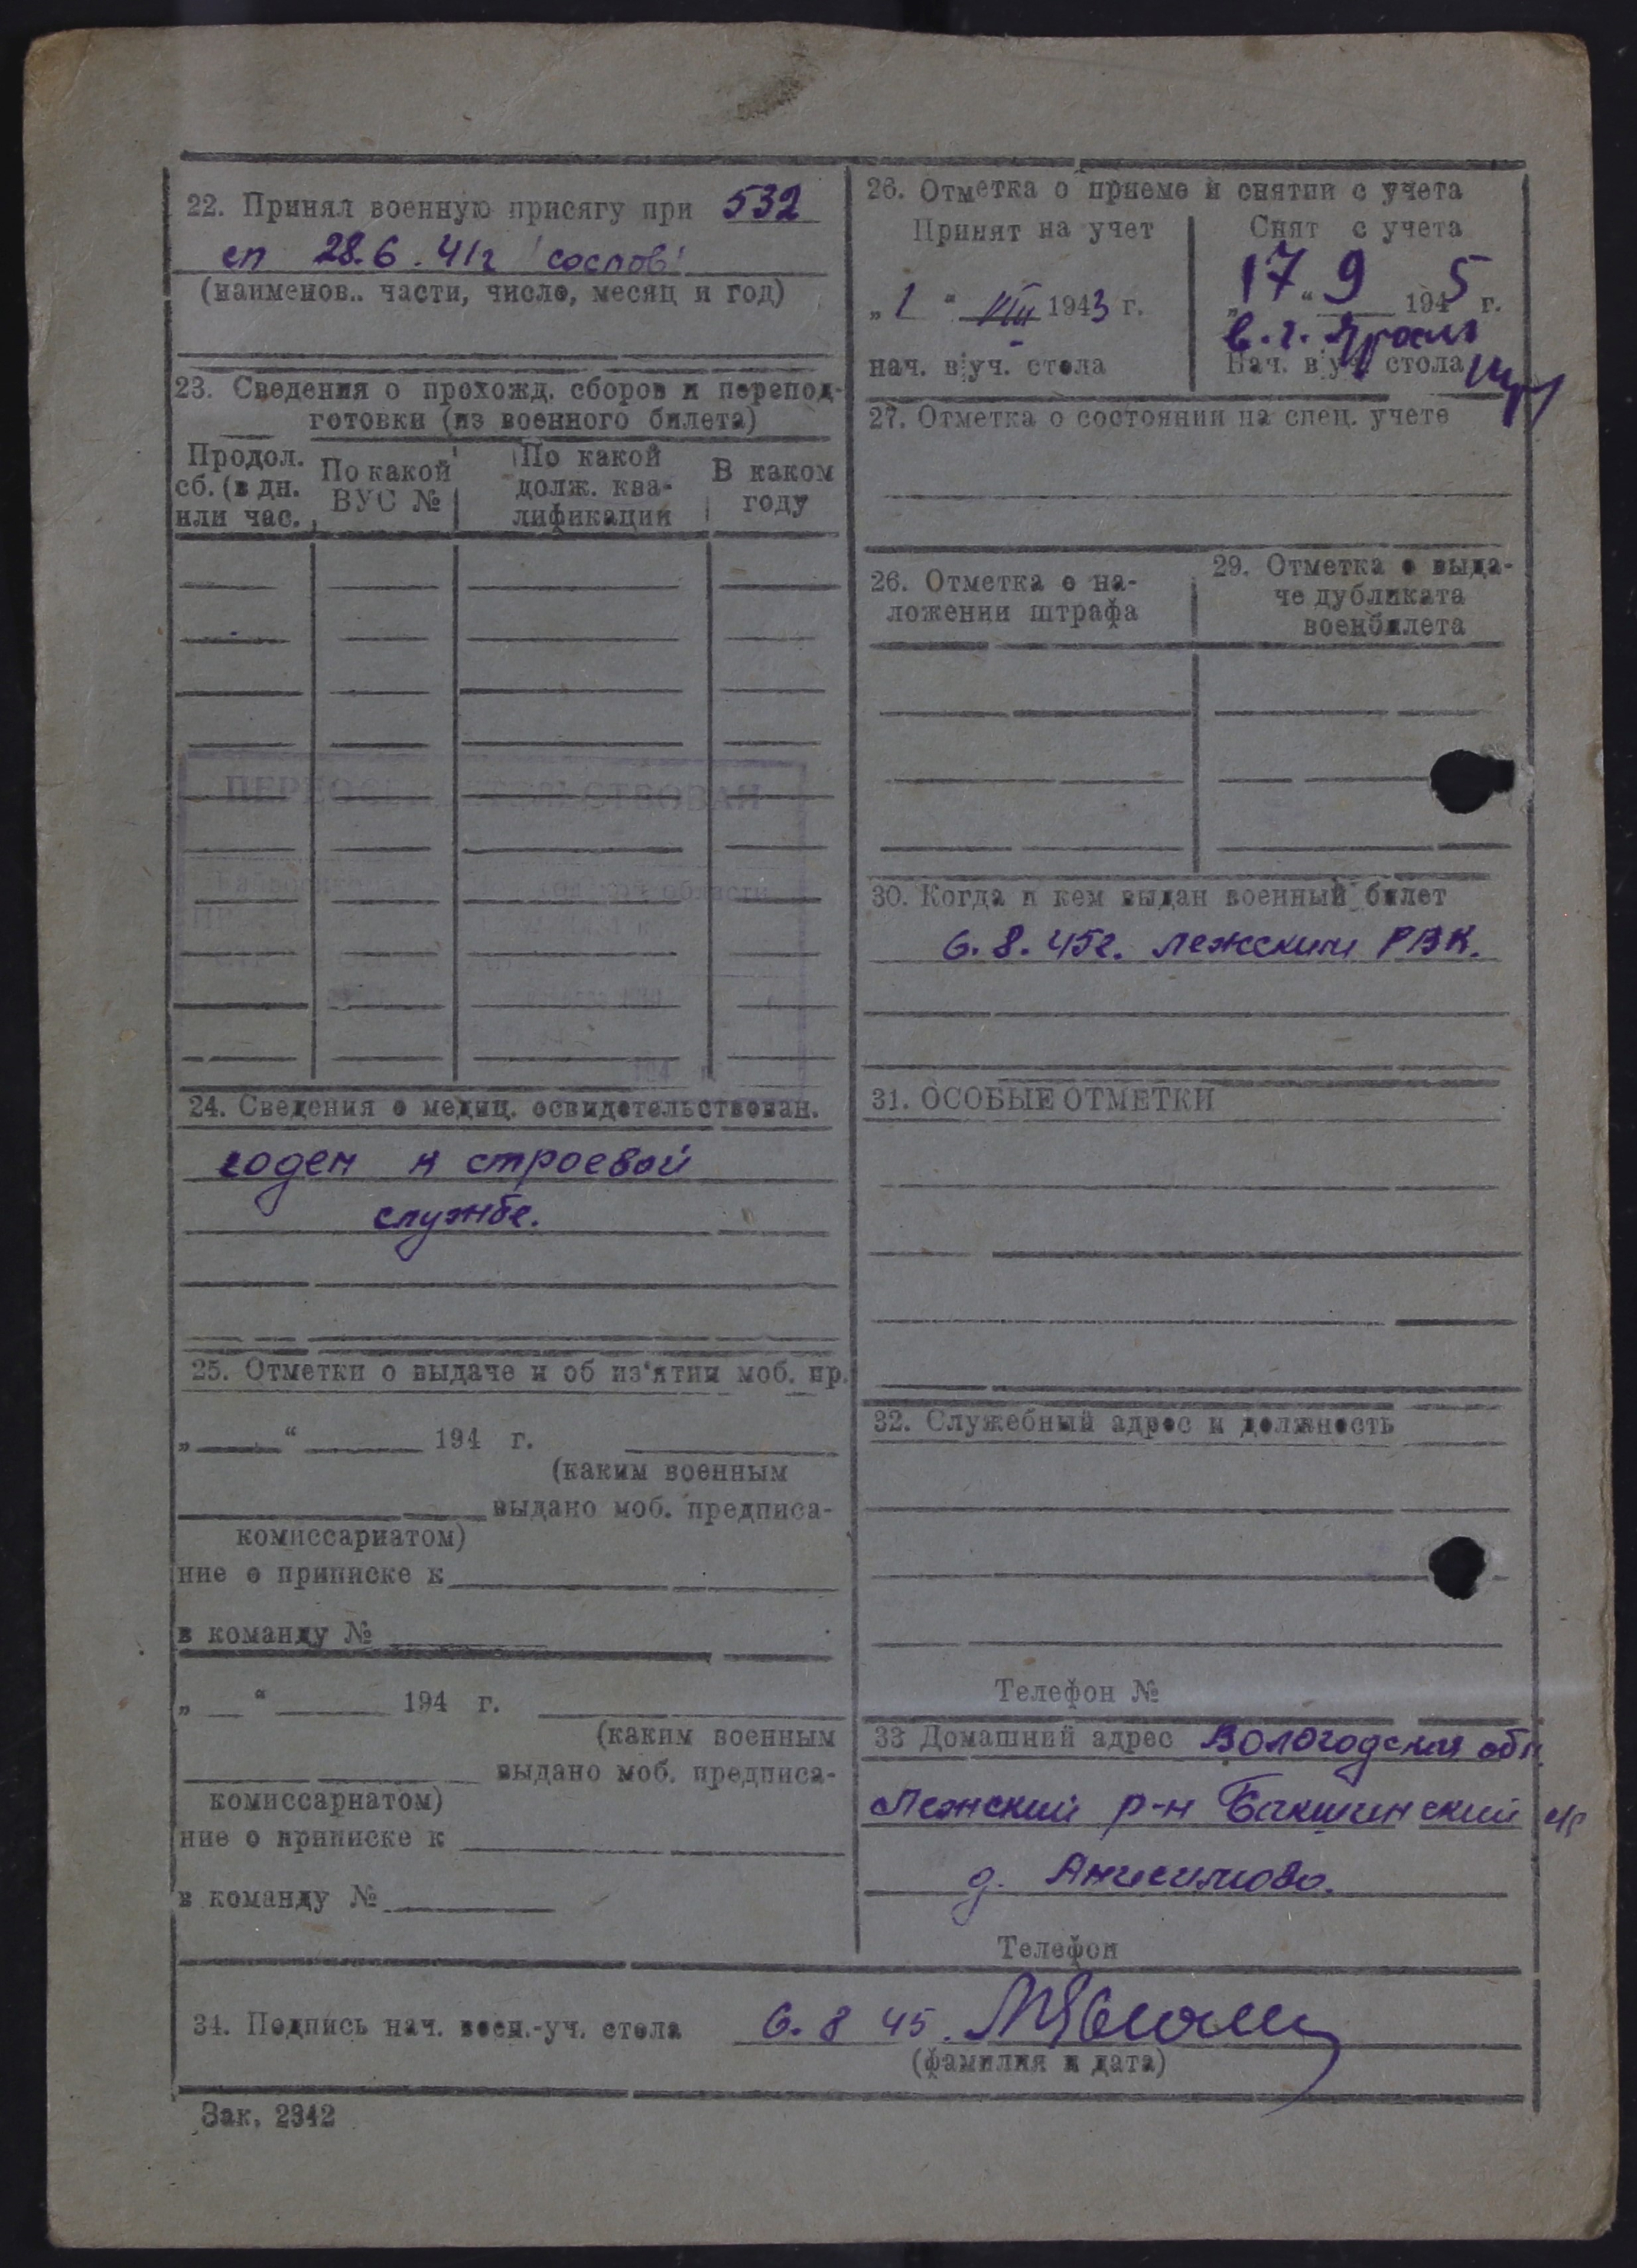 22. Принял военную присягу при 532
сп 28.6.41г
(наименов.. части, число, месяц и год)
23. Сведения о прохожд. сборов и перепод-
готовки (из военного билета)
Продол.
сб. (в дн.
или час.
По какой
ВУС №
По какой
долж. ква-
лификации
В каком
году
24. Сведения о медиц. освидетельствован.
годен к строевой
службе.
25. Отметки о выдаче и об из'ятии моб. пр.
„ “ 194 г.
(каким военным
выдано моб. предписа-
комиссариатом)
ние о приписке к
в команду №
„ “ 194 г.
(каким военным
выдано моб. предписа-
комиссариатом)
ние о приписке к
в команду №
26. Отметка о приеме и снятии с учета
Принят на учет
„1“ VIII 1943 г.
нач. в уч. стола
Снят с учета
„17“ 9 1945 г.
в. г.
Нач. в уч. стола
27. Отметка о состоянии на спец. учете
26. Отметка о на-
ложении штрафа
29. Отметка о выда-
че дубликата
военбилета
30. Когда и кем выдан военный билет
6.8.45г. Лежским РВК.
31. ОСОБЫЕ ОТМЕТКИ
32. Служебный адрес и должность
Телефон №
33 Домашний адрес Вологодская обл
Лежский р-н Бакшинский с/с
д. Анисимово.
Телефон
34. Подпись нач. воен.-уч. стола 6.8 45.
(фамилия и дата)
Зак. 2342